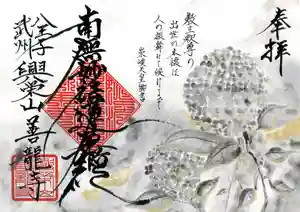 奉拝
教主釈尊の
出世の本懐は
人の振舞にて候けるぞ
崇峻天皇御書
南無妙法蓮華経
八王子
武州興栄山
善龍寺